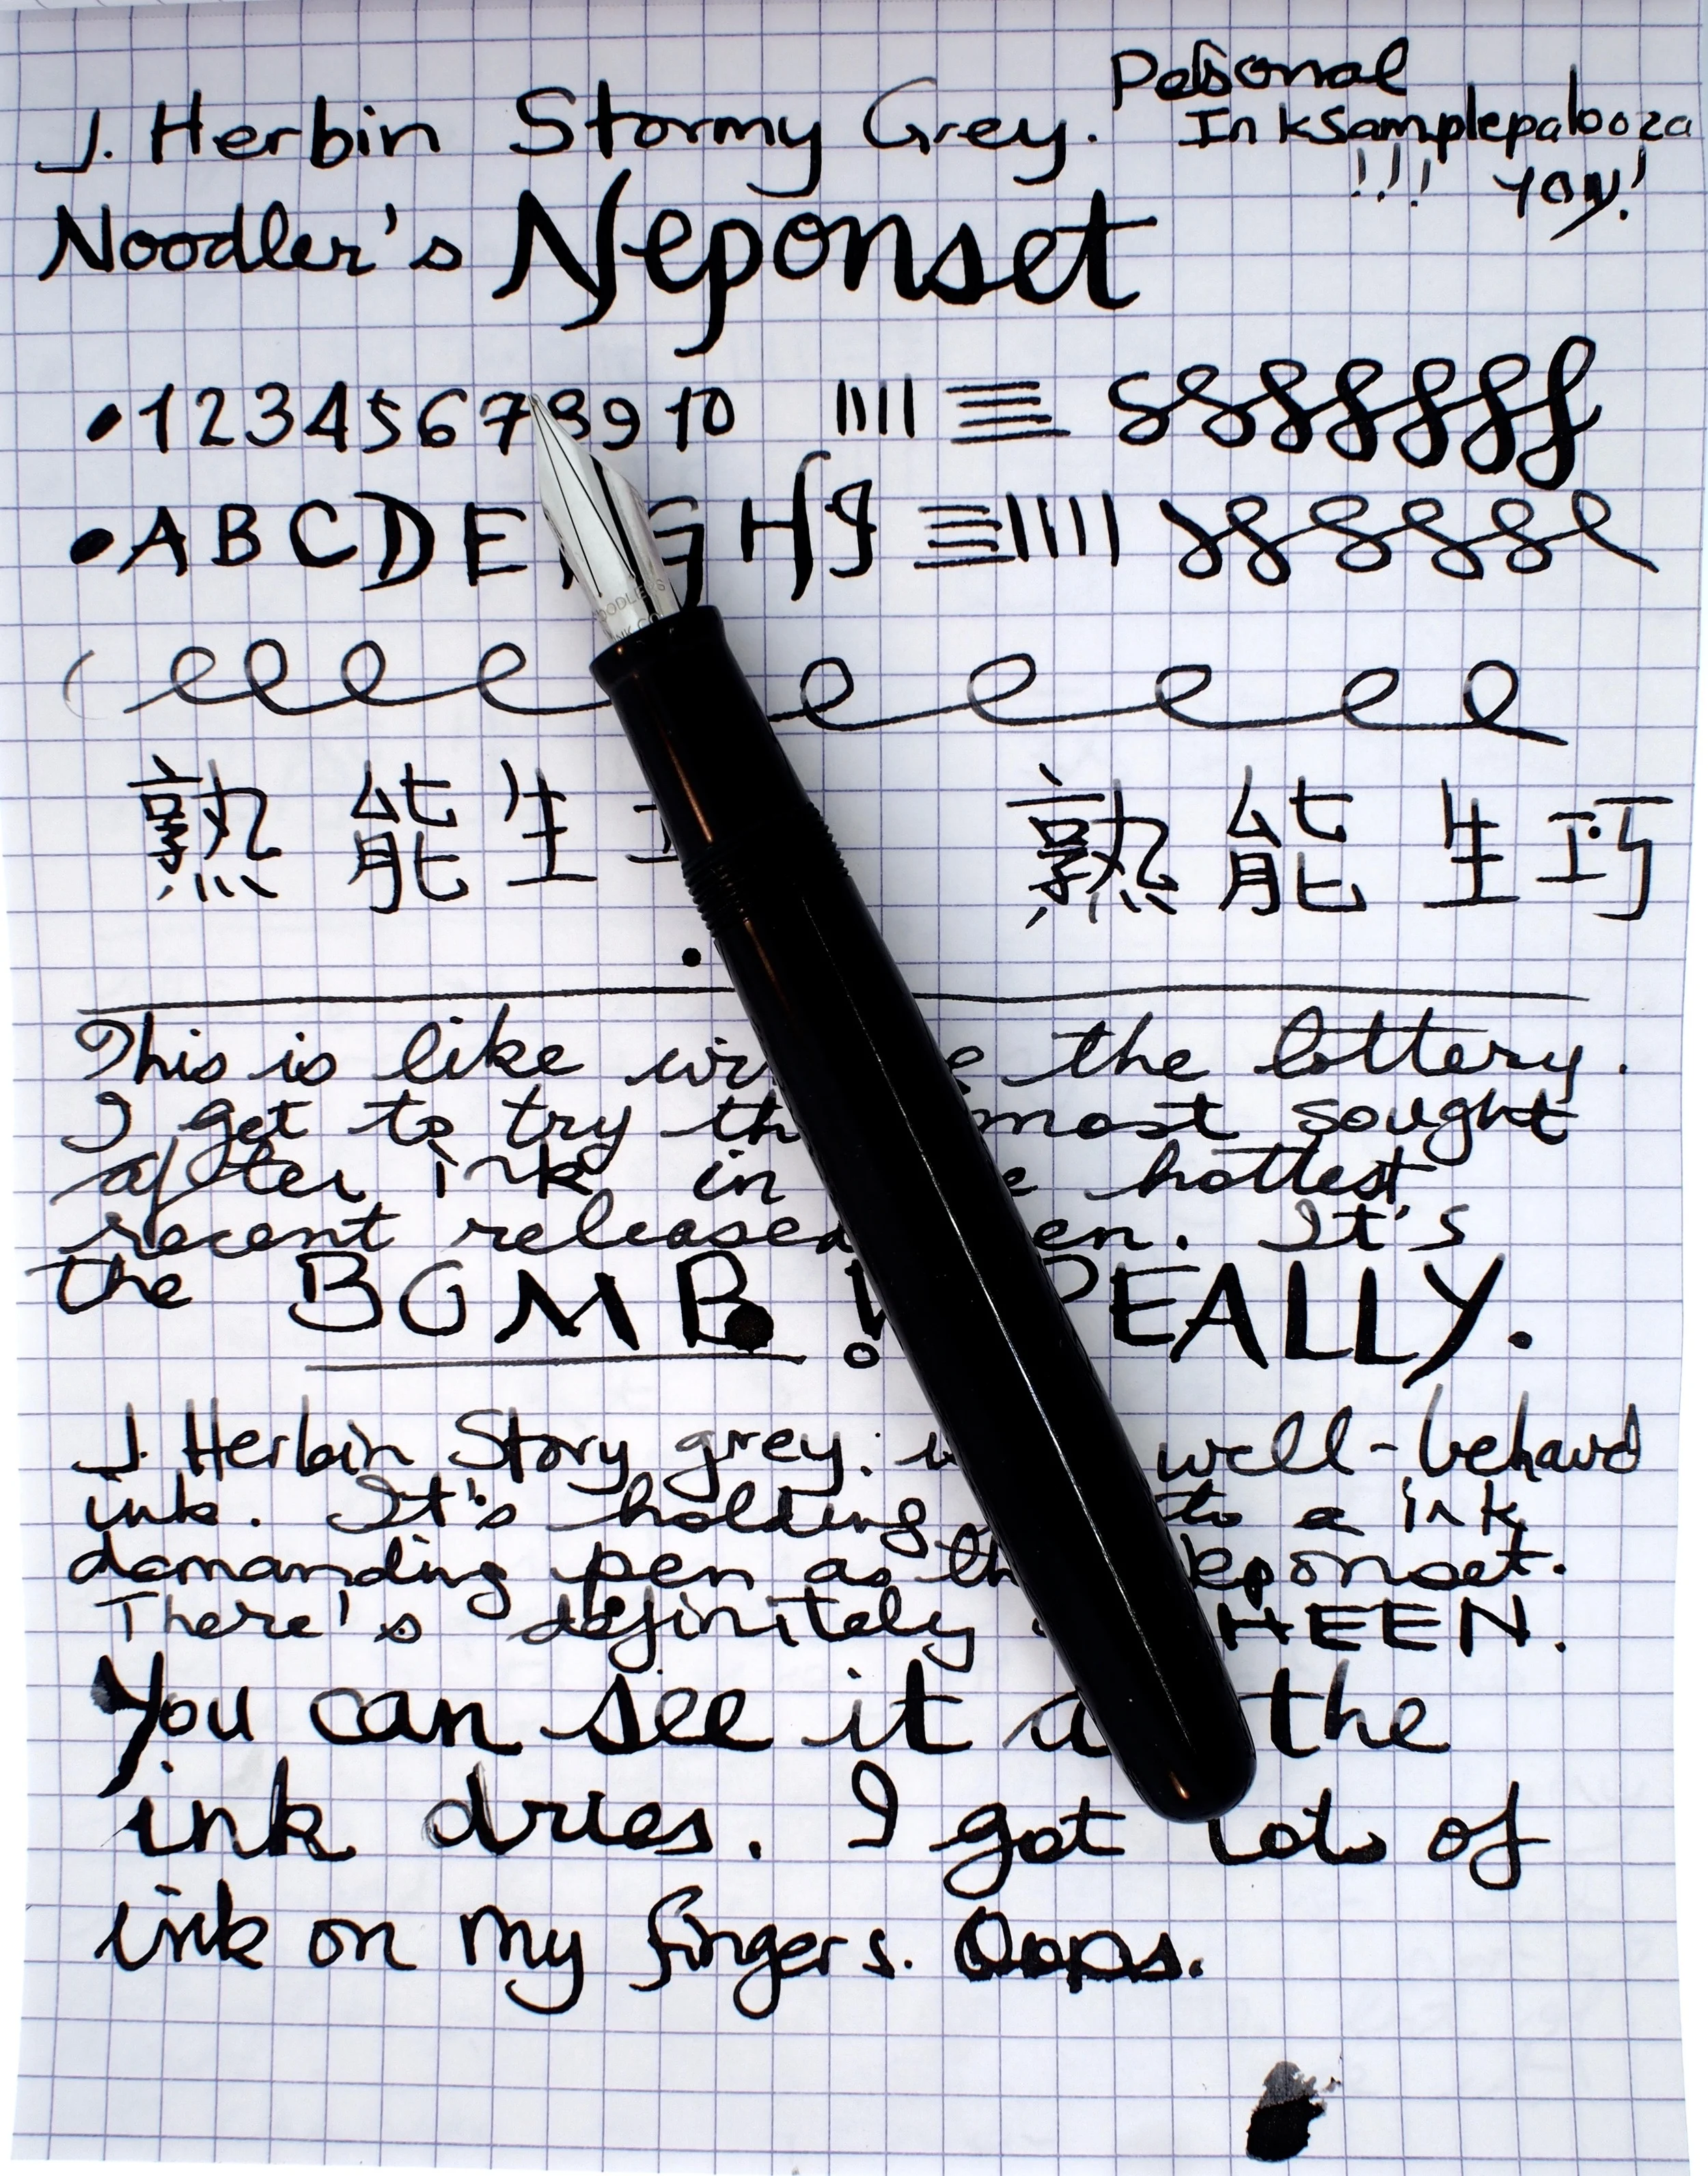 J. Herbin Stormy Grey.
Personal
InkSamplepalooza
!!! YAY!
Noodler's Neponset
1 2 3 4 5 6 7 8 9 10
A B C D E G H I
NOODLER'S
INK CO.
熟能生 熟能生巧
This is like the lottery.
I get to try most sought
after ink in hottest
recent released It's
the BOMB! REALLY.
J. Herbin Story grey. well-behavd
ink. It's holding to a ink
demanding pen as Neponset.
There's definitely SHEEN.
You can see it the
ink dries. I got lots of
ink on my fingers. Oops.